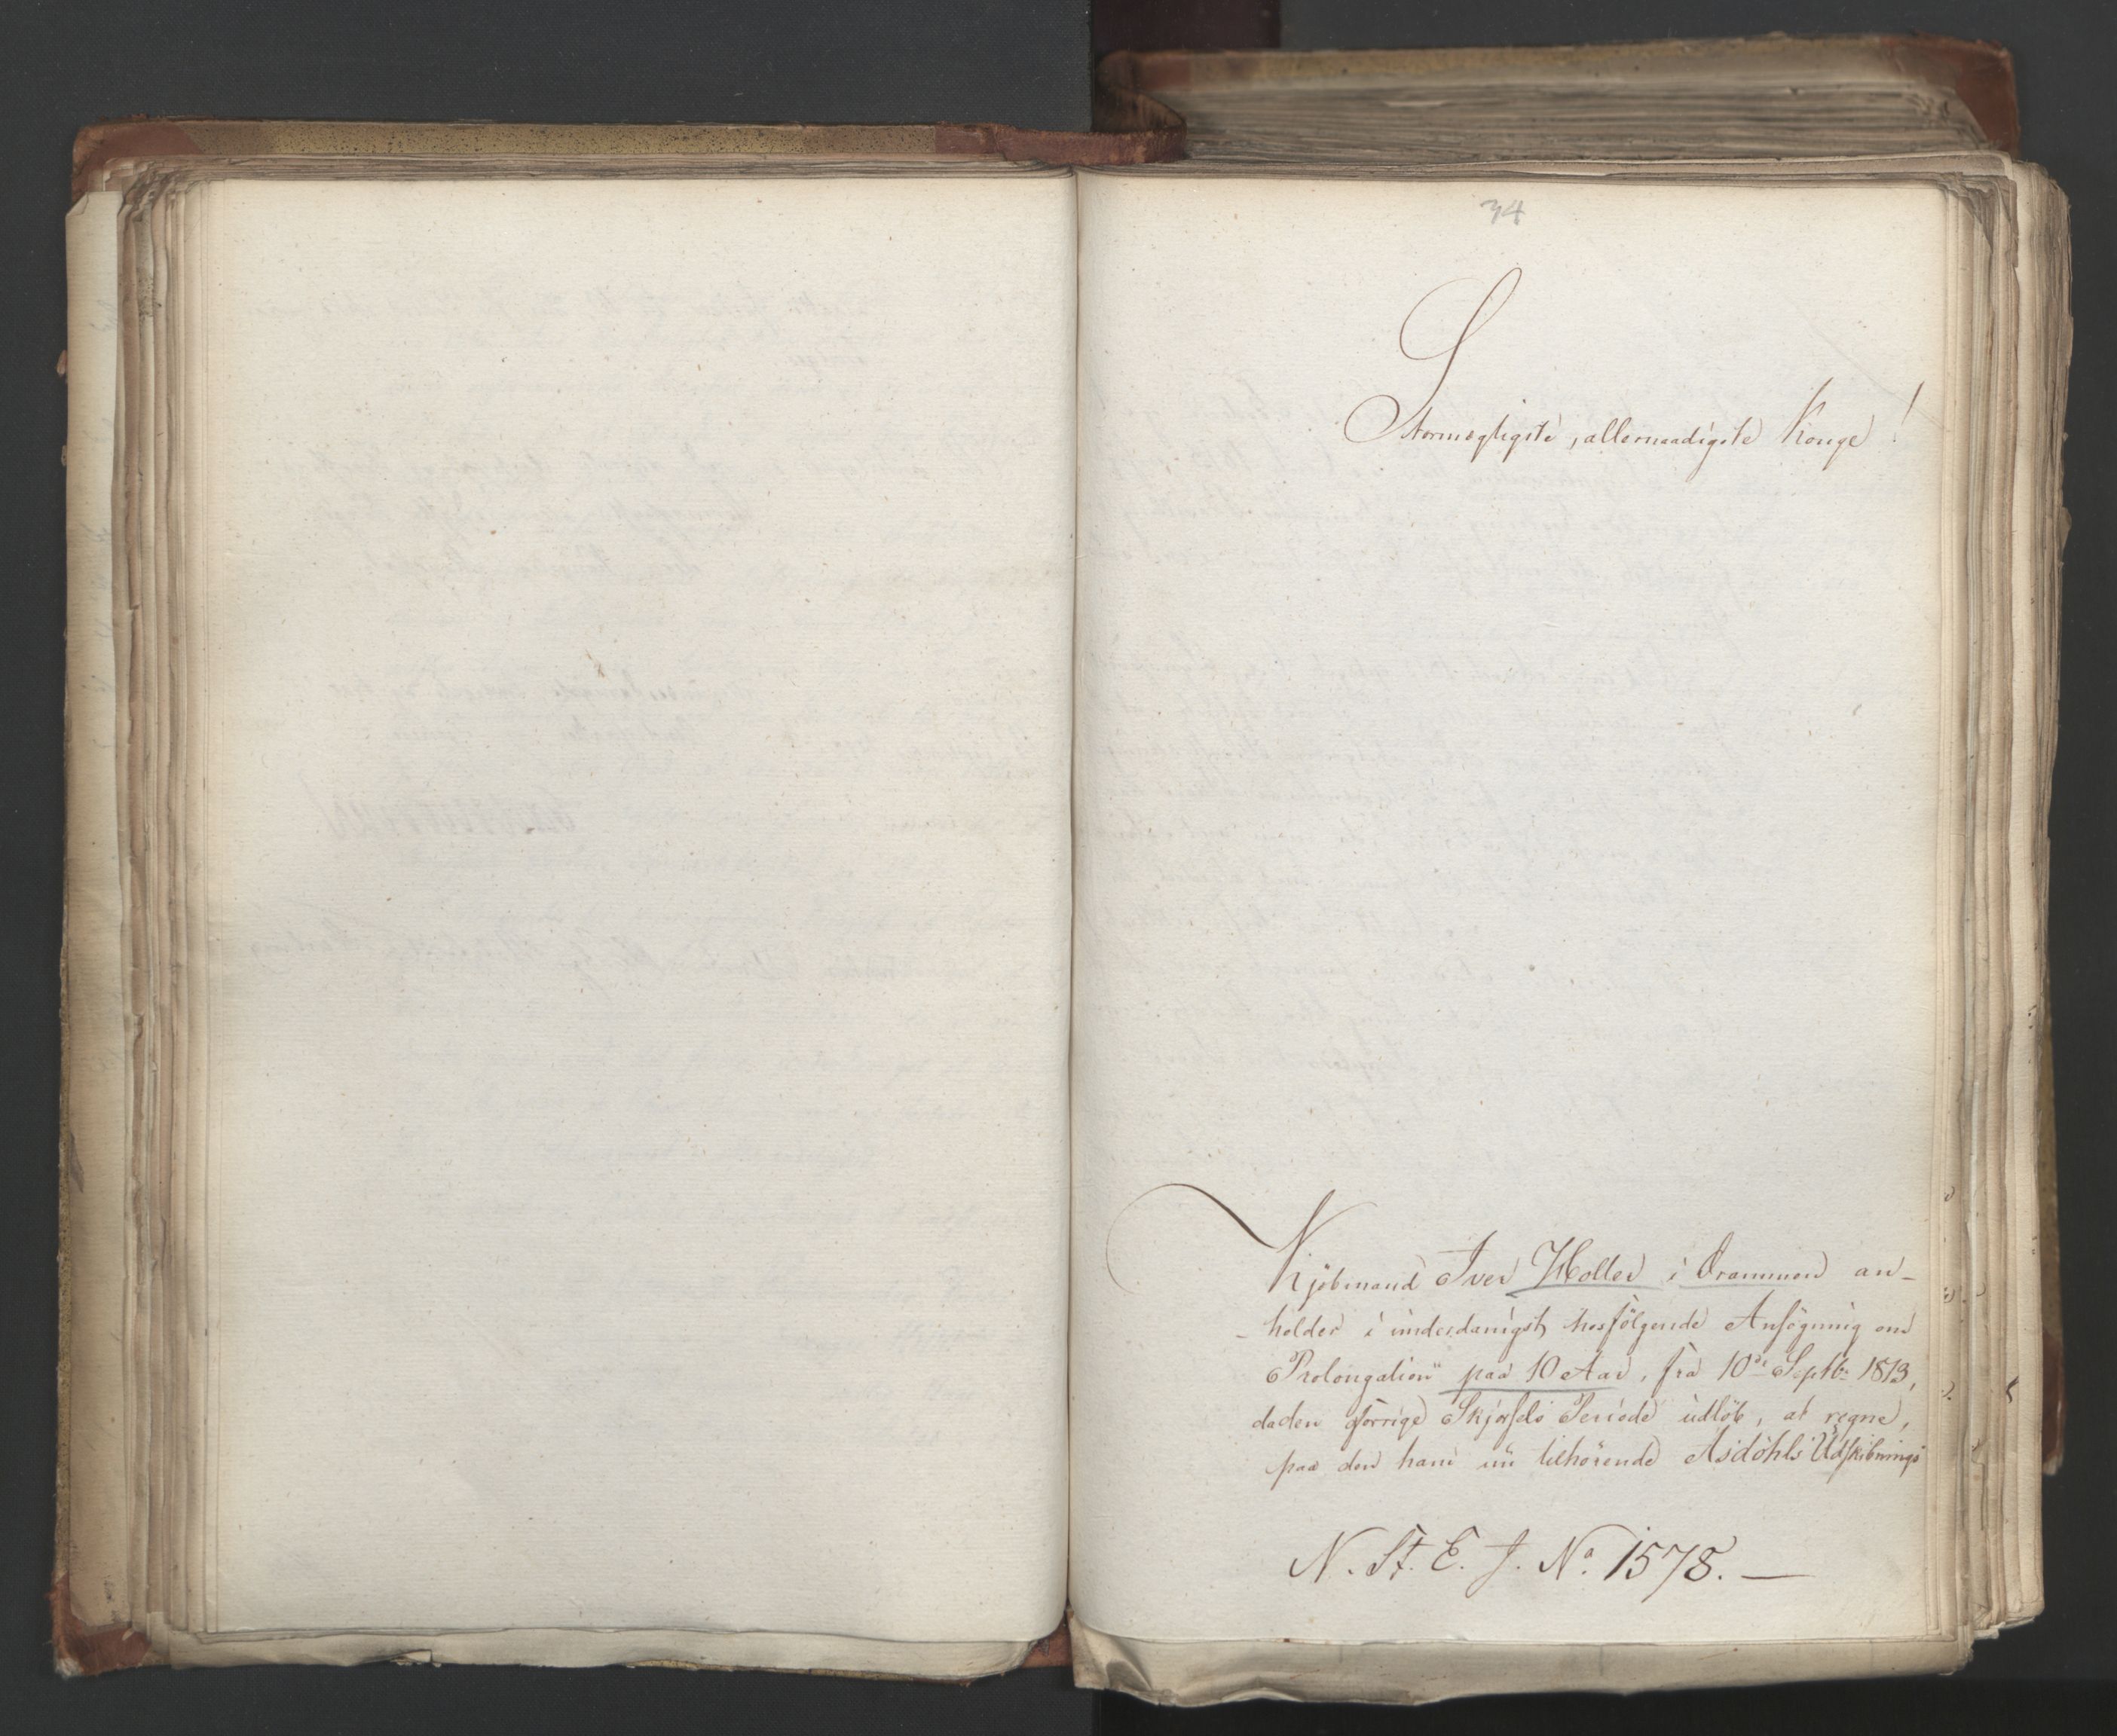 34
Stormægtigste, allernaadigste Konge!
Kjöbmand Iver Holter i Drammen an-
- holder i underdanigst hosfölgende Ansögning om
Prolongation paa 10 Aar, fra 10de Septbr 1813,
da den forrige Skjörsels Periode udlöb, at regne,
paa den ham nu tilhörende Asdöhls Udskibnings
N. St. E. J. No. 1578. —